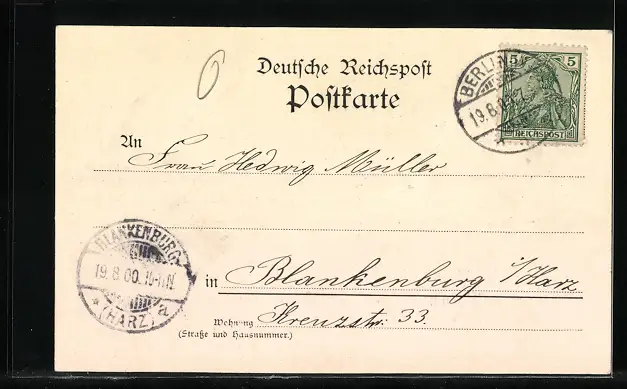 Deutsche Reichspost
Postkarte
BERLIN
19.8.0
5 5
REICHSPOST
An
Frau Hedwig Müller
BLANKENBURG
19.8.00.
a
* (HARZ)
in Blankenburg i/Harz
Wohnung Kreuzstr. 33.
(Straße und Hausnummer.)